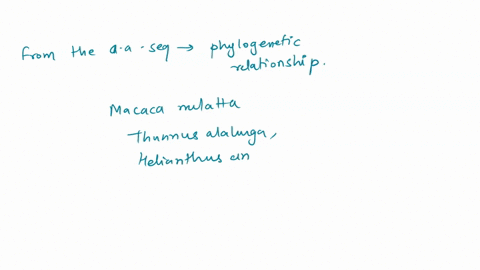 from the a.a.seq → phylogenetic
relationship.
Macaca mulatta
Thunnus alalunga,
Helianthus an